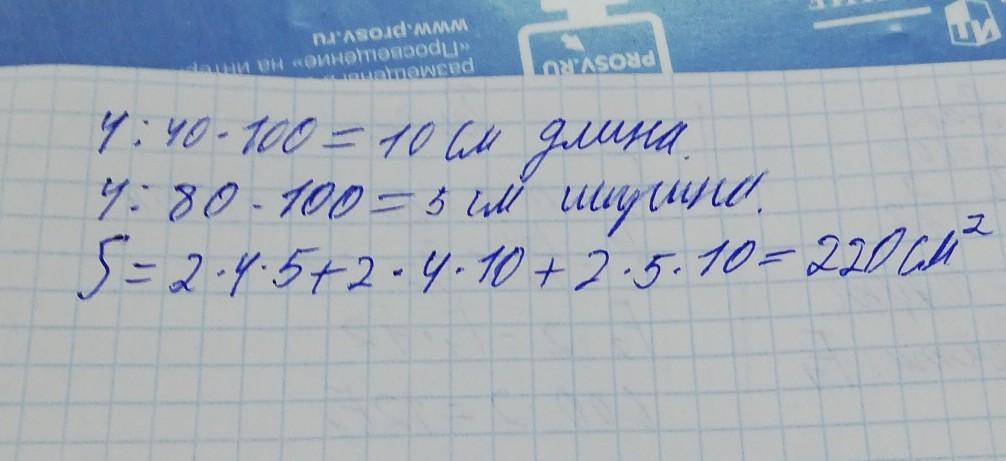 www.prosv.ru
«Просвещение» на интер
размещены
PROSV.RU
4 : 40 · 100 = 10 см длина.
4 : 80 · 100 = 5 см ширина.
S = 2 · 4 · 5 + 2 · 4 · 10 + 2 · 5 · 10 = 220 см²